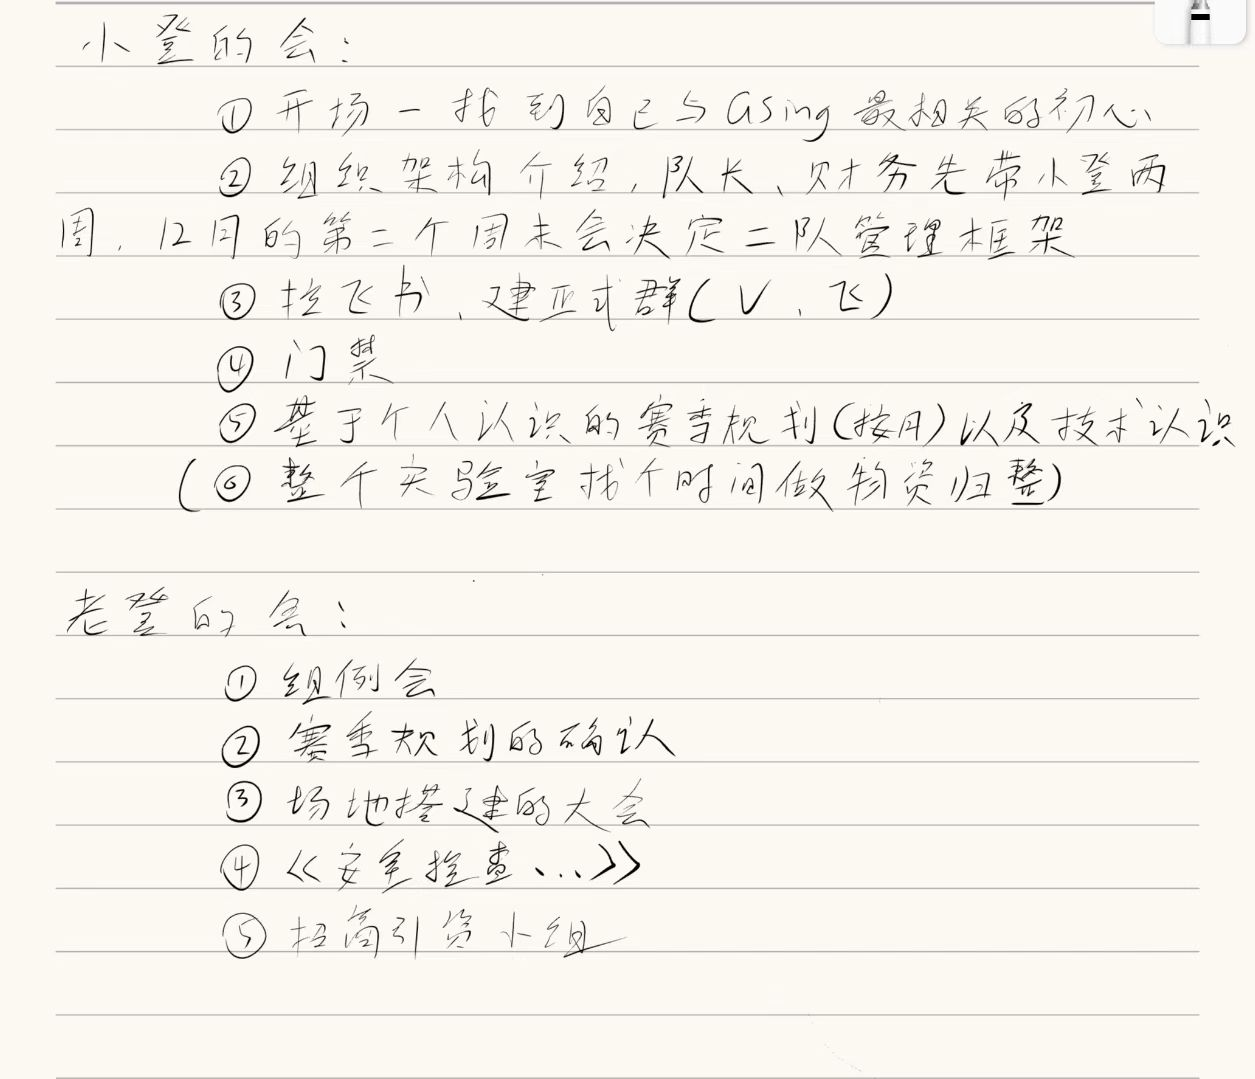 小登的会：
① 开场一找到自己与Gsing最相关的初心
② 组织架构介绍，队长、财务先带小登两
周，12月的第二个周末会决定二队管理框架
③ 拉飞书、建正式群(V、飞)
④ 门禁
⑤ 基于个人认识的赛季规划(按月)以及技术认识
(⑥ 整个实验室找个时间做物资归整)
老登的会：
① 组例会
② 赛季规划的确认
③ 场地搭建的大会
④ 《安全检查、...》
⑤ 招商引资小组